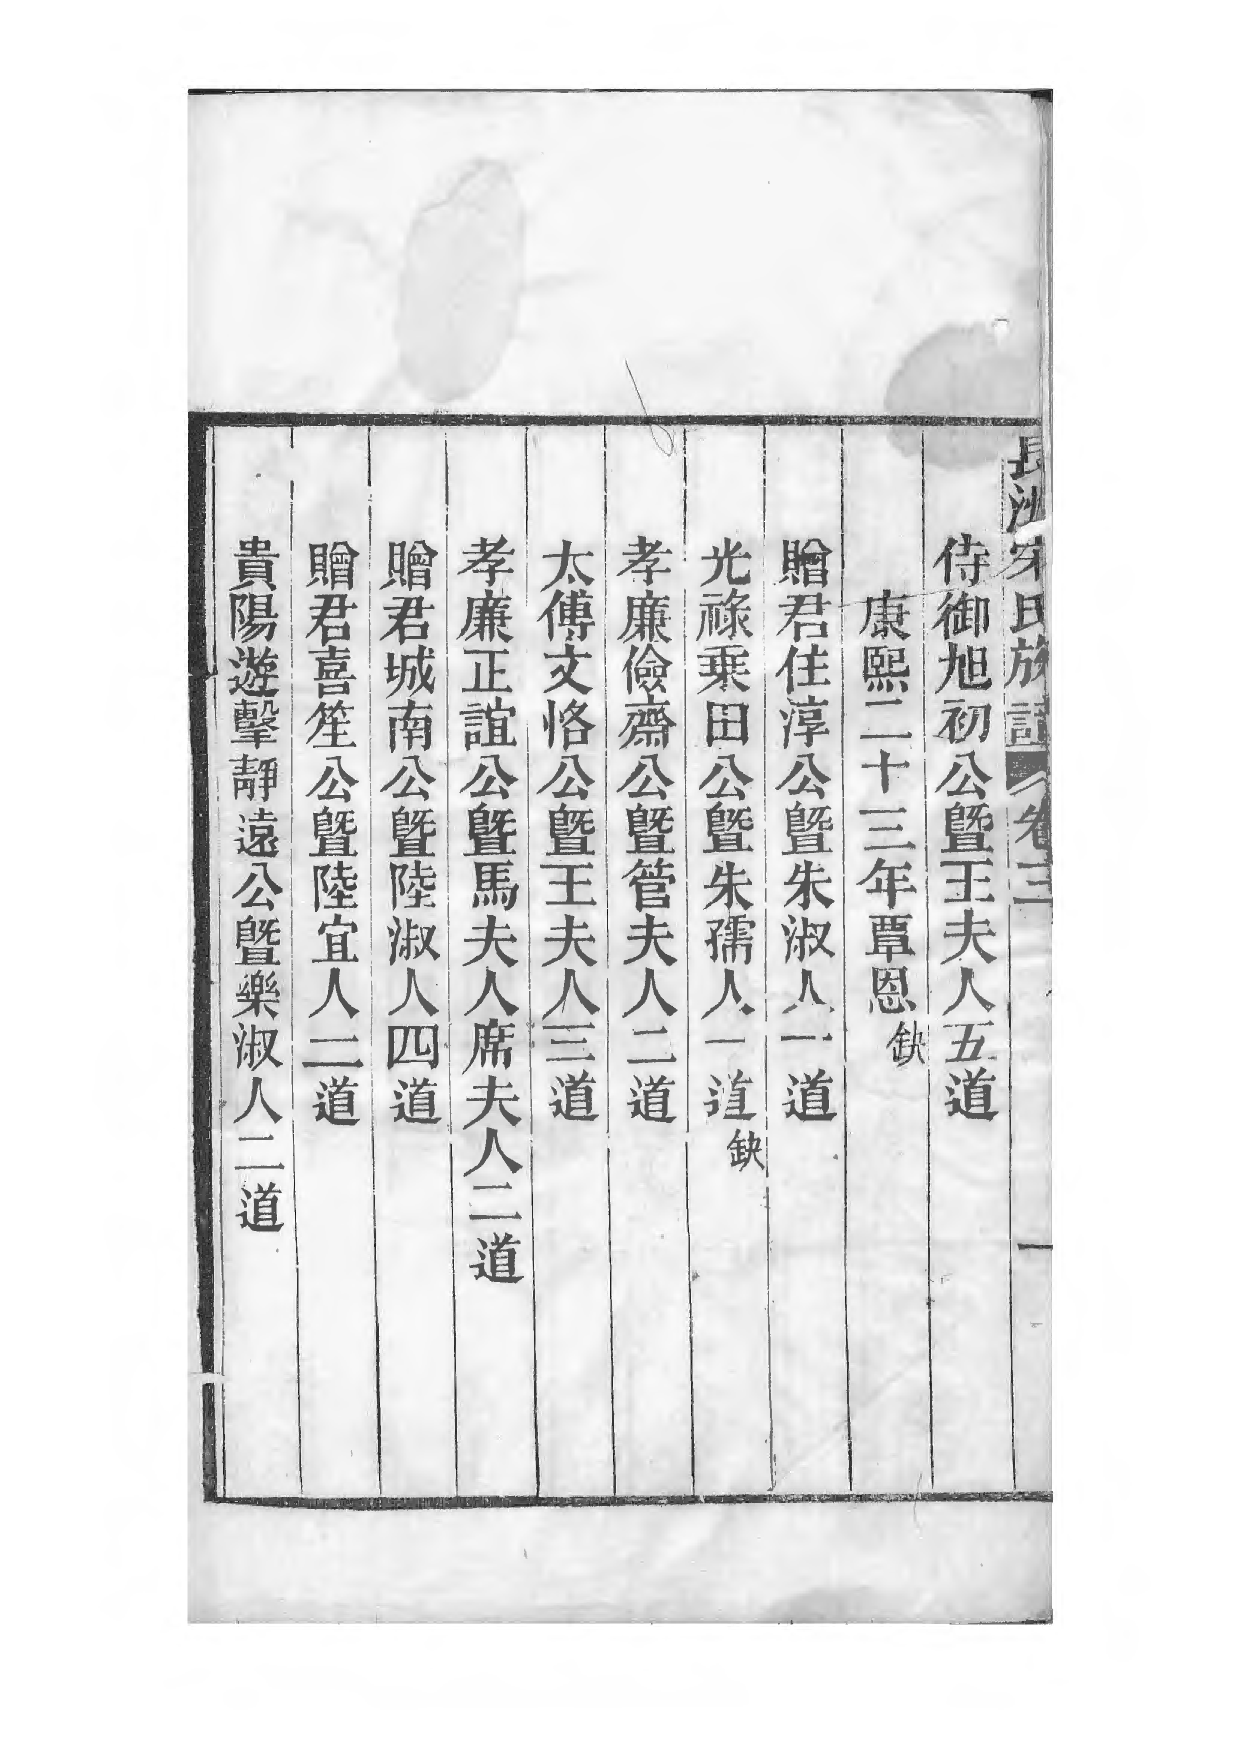 長洲宋氏族譜 卷三 一
侍御旭初公暨王夫人五道
康熙二十三年覃恩缺
贈君住淳公暨朱淑人一道
光祿乘田公暨朱孺人一道缺
孝廉儉齋公暨管夫人二道
太傅文恪公暨王夫人三道
孝廉正誼公暨馬夫人席夫人二道
贈君城南公暨陸淑人四道
贈君喜笙公暨陸宜人二道
貴陽遊擊靜遠公暨樂淑人二道